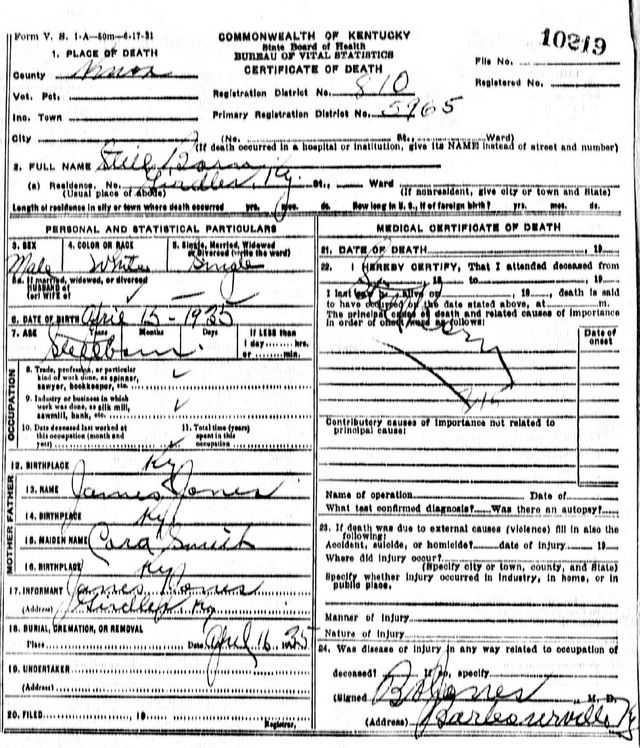 Form V. S. 1-A—50m—6-17-31
COMMONWEALTH OF KENTUCKY
State Board of Health
BUREAU OF VITAL STATISTICS
CERTIFICATE OF DEATH
10219
File No.
Registered No.
1. PLACE OF DEATH
County Knox
Vot. Pct.
Inc. Town
City
Registration District No. 810
Primary Registration District No. 5965
(No. St., Ward)
(If death occurred in a hospital or institution, give its NAME instead of street and number)
2. FULL NAME Still Born
(a) Residence. No. Ky. St., Ward
(Usual place of abode) (If nonresident, give city or town and State)
Length of residence in city or town where death occurred yrs. mos. ds. How long in U. S., if of foreign birth? yrs. mos. ds.
PERSONAL AND STATISTICAL PARTICULARS
3. SEX Male
4. COLOR OR RACE White
5. Single, Married, Widowed or Divorced (write the word) Single
5a. If married, widowed, or divorced
HUSBAND of
(or) WIFE of
6. DATE OF BIRTH April 15 - 1935
7. AGE Years Months Days IF LESS than
1 day hrs.
or min.
Stillborn
OCCUPATION
8. Trade, profession, or particular
kind of work done, as spinner,
sawyer, bookkeeper, etc. ✓
9. Industry or business in which
work was done, as silk mill,
sawmill, bank, etc. ✓
10. Date deceased last worked at
this occupation (month and
year)
11. Total time (years)
spent in this
occupation
12. BIRTHPLACE Ky
FATHER
13. NAME James Jones
14. BIRTHPLACE Ky
MOTHER
15. MAIDEN NAME Cora Smith
16. BIRTHPLACE Ky
17. INFORMANT James Jones
(Address) Ky
18. BURIAL, CREMATION, OR REMOVAL
Place Date April 16 1935
19. UNDERTAKER
(Address)
20. FILED 19 Registrar,
MEDICAL CERTIFICATE OF DEATH
21. DATE OF DEATH , 19
22. I HEREBY CERTIFY, That I attended deceased from
19 to 19
I last saw alive on 19 , death is said
to have occurred on the date stated above, at
The principal cause of death and related causes of importance
in order of onset were as follows:
Date of
onset
Contributory causes of importance not related to
principal cause:
Name of operation Date of
What test confirmed diagnosis? Was there an autopsy?
23. If death was due to external causes (violence) fill in also the
following:
Accident, suicide, or homicide? date of injury 19
Where did injury occur?
(Specify city or town, county, and State)
Specify whether injury occurred in industry, in home, or in
public place.
Manner of injury
Nature of injury
24. Was disease or injury in any way related to occupation of
deceased? If so, specify
(Signed Jones , M. D.
(Address) Barbourville Ky